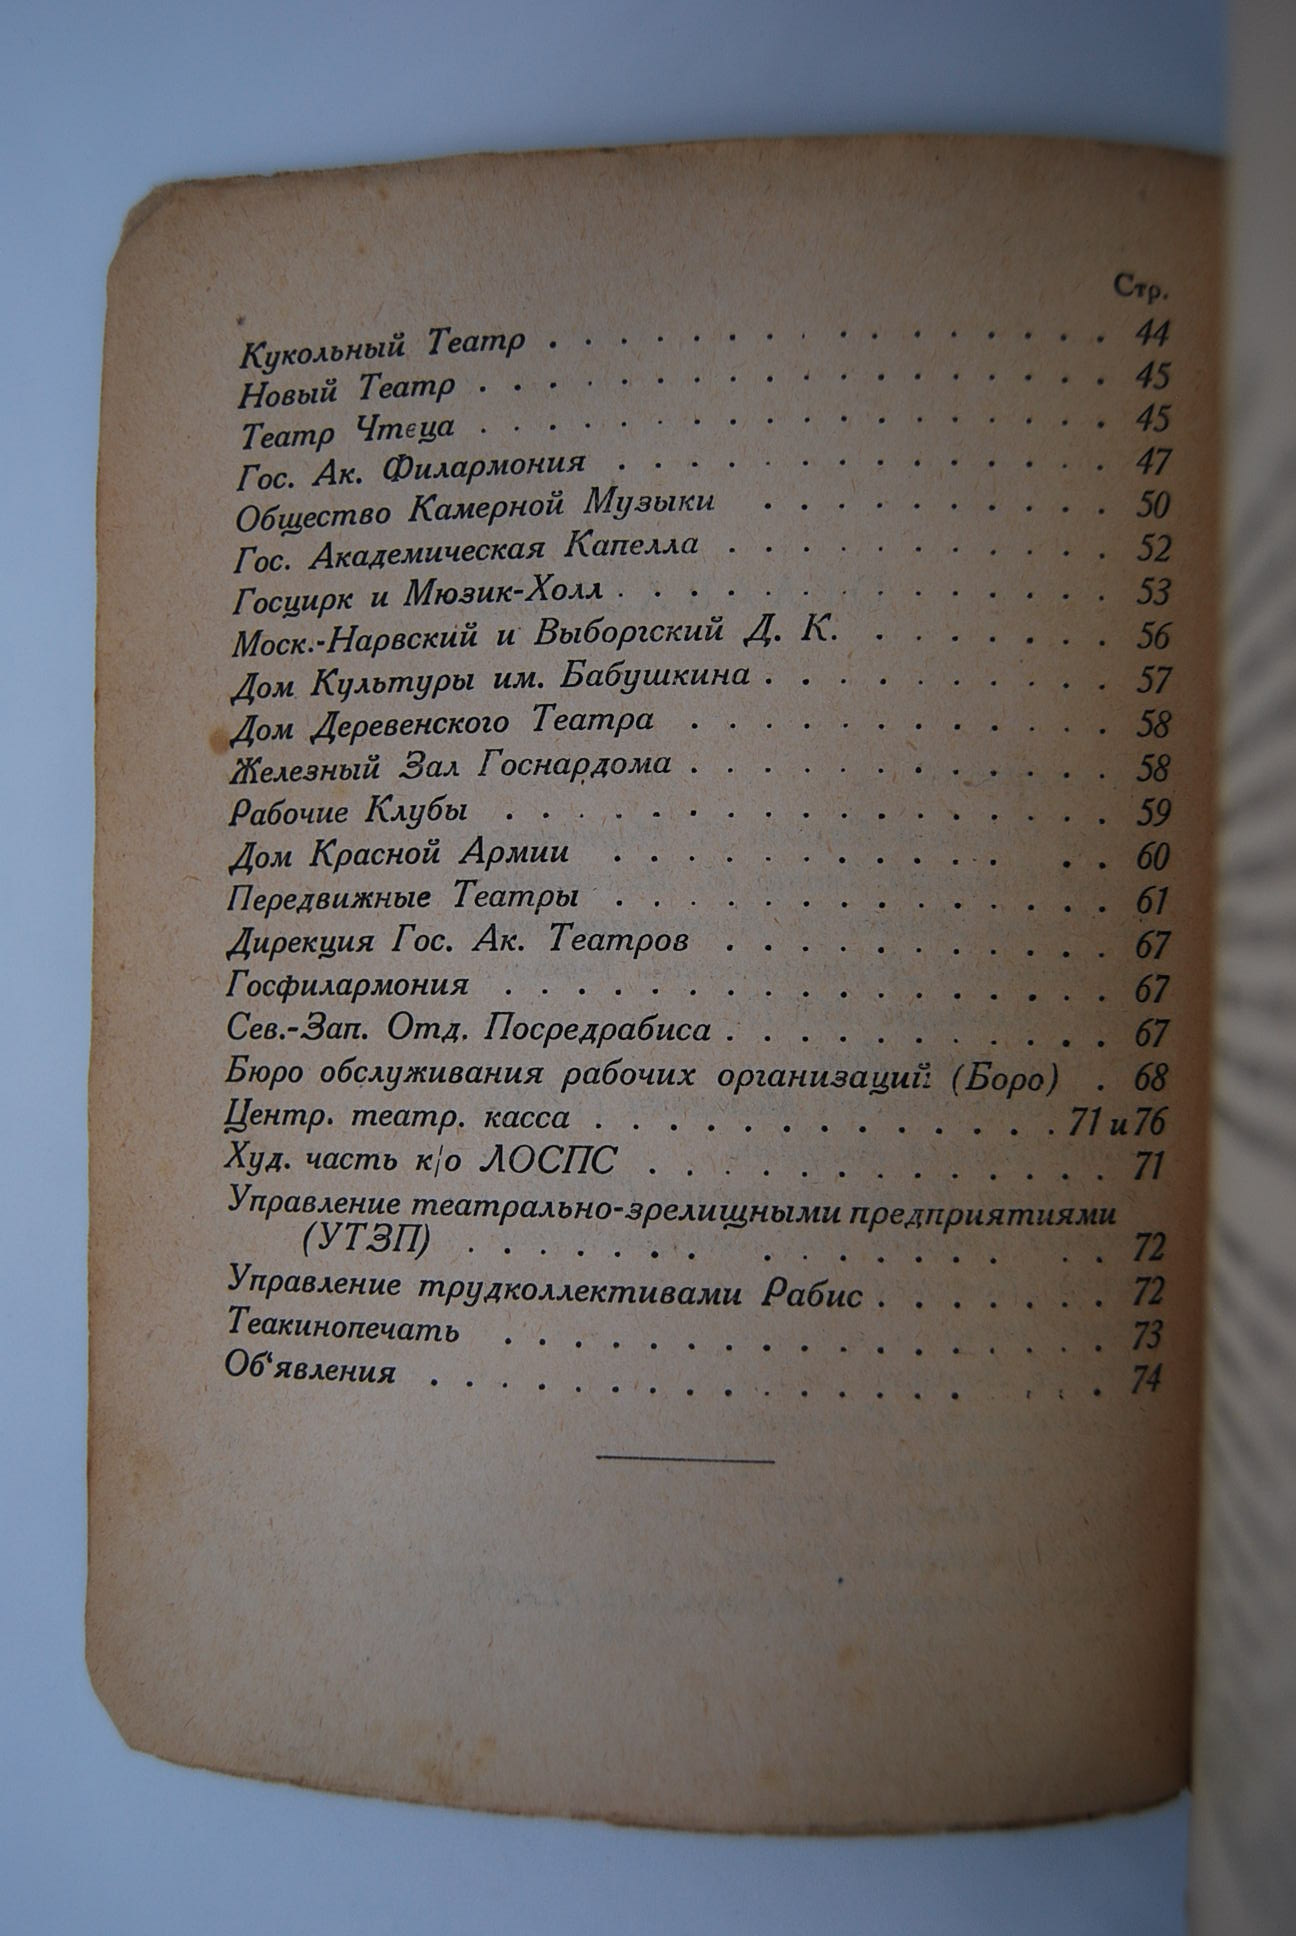 Стр.
Кукольный Театр . . . . . . . . . . . . . . . . 44
Новый Театр . . . . . . . . . . . . . . . . . . 45
Театр Чтеца . . . . . . . . . . . . . . . . . . 45
Гос. Ак. Филармония . . . . . . . . . . . . . . 47
Общество Камерной Музыки . . . . . . . . . . 50
Гос. Академическая Капелла . . . . . . . . . . . 52
Госцирк и Мюзик-Холл . . . . . . . . . . . . . . 53
Моск.-Нарвский и Выборгский Д. К. . . . . . . . 56
Дом Культуры им. Бабушкина . . . . . . . . . . 57
Дом Деревенского Театра . . . . . . . . . . . . 58
Железный Зал Госнардома . . . . . . . . . . . . 58
Рабочие Клубы . . . . . . . . . . . . . . . . . 59
Дом Красной Армии . . . . . . . . . . . . . 60
Передвижные Театры . . . . . . . . . . . . . . 61
Дирекция Гос. Ак. Театров . . . . . . . . . . . 67
Госфилармония . . . . . . . . . . . . . . . . . 67
Сев.-Зап. Отд. Посредрабиса . . . . . . . . . . . 67
Бюро обслуживания рабочих организаций (Боро) . 68
Центр. театр. касса . . . . . . . . . . . . . 71 и 76
Худ. часть к/о ЛОСПС . . . . . . . . . . . . . 71
Управление театрально-зрелищными предприятиями
(УТЗП) . . . . . . . . . . . . . . . . 72
Управление трудколлективами Рабис . . . . . . . 72
Теакинопечать . . . . . . . . . . . . . . . . . 73
Об‘явления . . . . . . . . . . . . . . . . . . 74